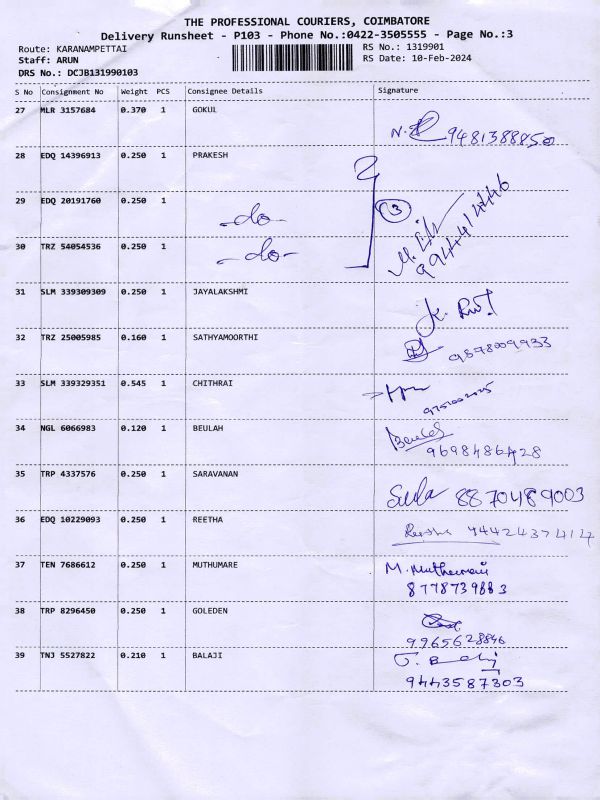 THE PROFESSIONAL COURIERS, COIMBATORE
Delivery Runsheet - P103 - Phone No.:0422-3505555 - Page No.:3
Route: KARANAMPETTAI RS No.: 1319901
Staff: ARUN RS Date: 10-Feb-2024
DRS No.: DCJB131990103
S No Consignment No Weight PCS Consignee Details Signature
27 MLR 3157684 0.370 1 GOKUL
9481388850
28 EDQ 14396913 0.250 1 PRAKESH
29 EDQ 20191760 0.250 1 -do- 3
30 TRZ 54054536 0.250 1 -do-
9944414446
31 SLM 339309309 0.250 1 JAYALAKSHMI
32 TRZ 25005985 0.160 1 SATHYAMOORTHI
9878009933
33 SLM 339329351 0.545 1 CHITHRAI
34 NGL 6066983 0.120 1 BEULAH
9698486428
35 TRP 4337576 0.250 1 SARAVANAN 8870489003
36 EDQ 10229093 0.250 1 REETHA 9442437414
37 TEN 7686612 0.250 1 MUTHUMARE M. Muthumari
8778739883
38 TRP 8296450 0.250 1 GOLEDEN
9965628846
39 TNJ 5527822 0.210 1 BALAJI
9443587303